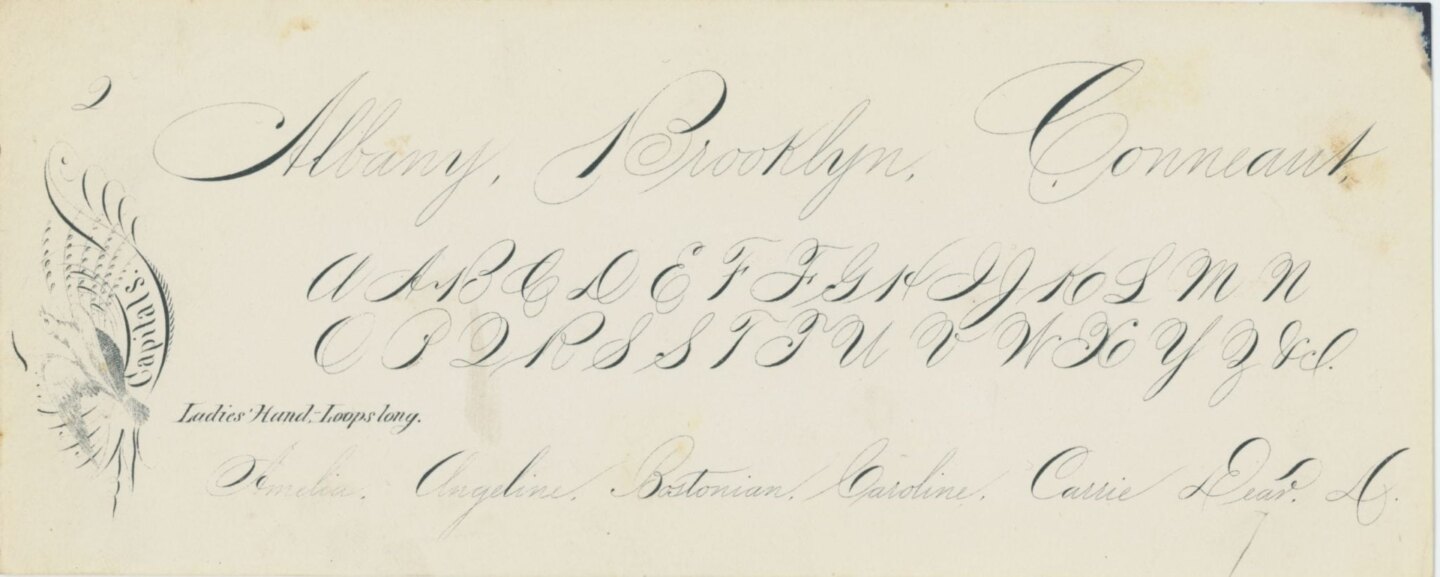 2
Albany, Brooklyn, Conneaut,
Capitals.
A A B C D E F F G H I J K L M N
O P Q R S S T T U V W X Y Z &c.
Ladies' Hand,-Loops long.
Amelia. Angeline. Bostonian. Caroline. Carrie Dear. D.